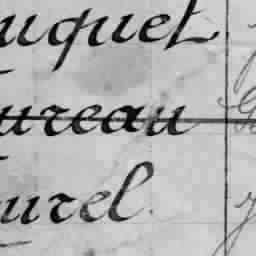 uquet.
ureau
urel.